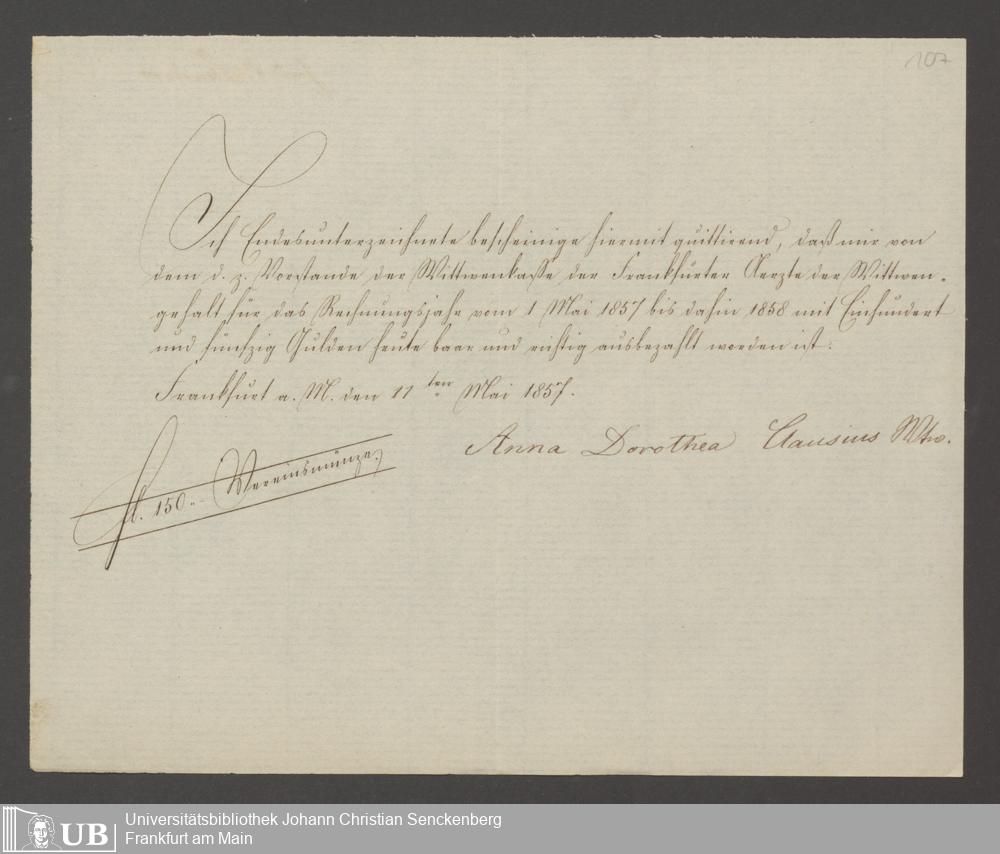 107
Ich Endesunterzeichnete bescheinige hiermit quittirend, daß mir von
dem d. z. Vorstande der Wittwenkasse der Frankfurter Aerzte der Wittwen-
gehalt für das Rechnungsjahr vom 1 Mai 1857 bis dahin 1858 mit Einhundert
und fünfzig Gulden heute baar und richtig ausbezahlt worden ist.
Frankfurt a. M. den 11ten Mai 1857.
Anna Dorothea Clausius Wtw.
fl. 150.- Vereinsmünze.
UB
Universitätsbibliothek Johann Christian Senckenberg
Frankfurt am Main